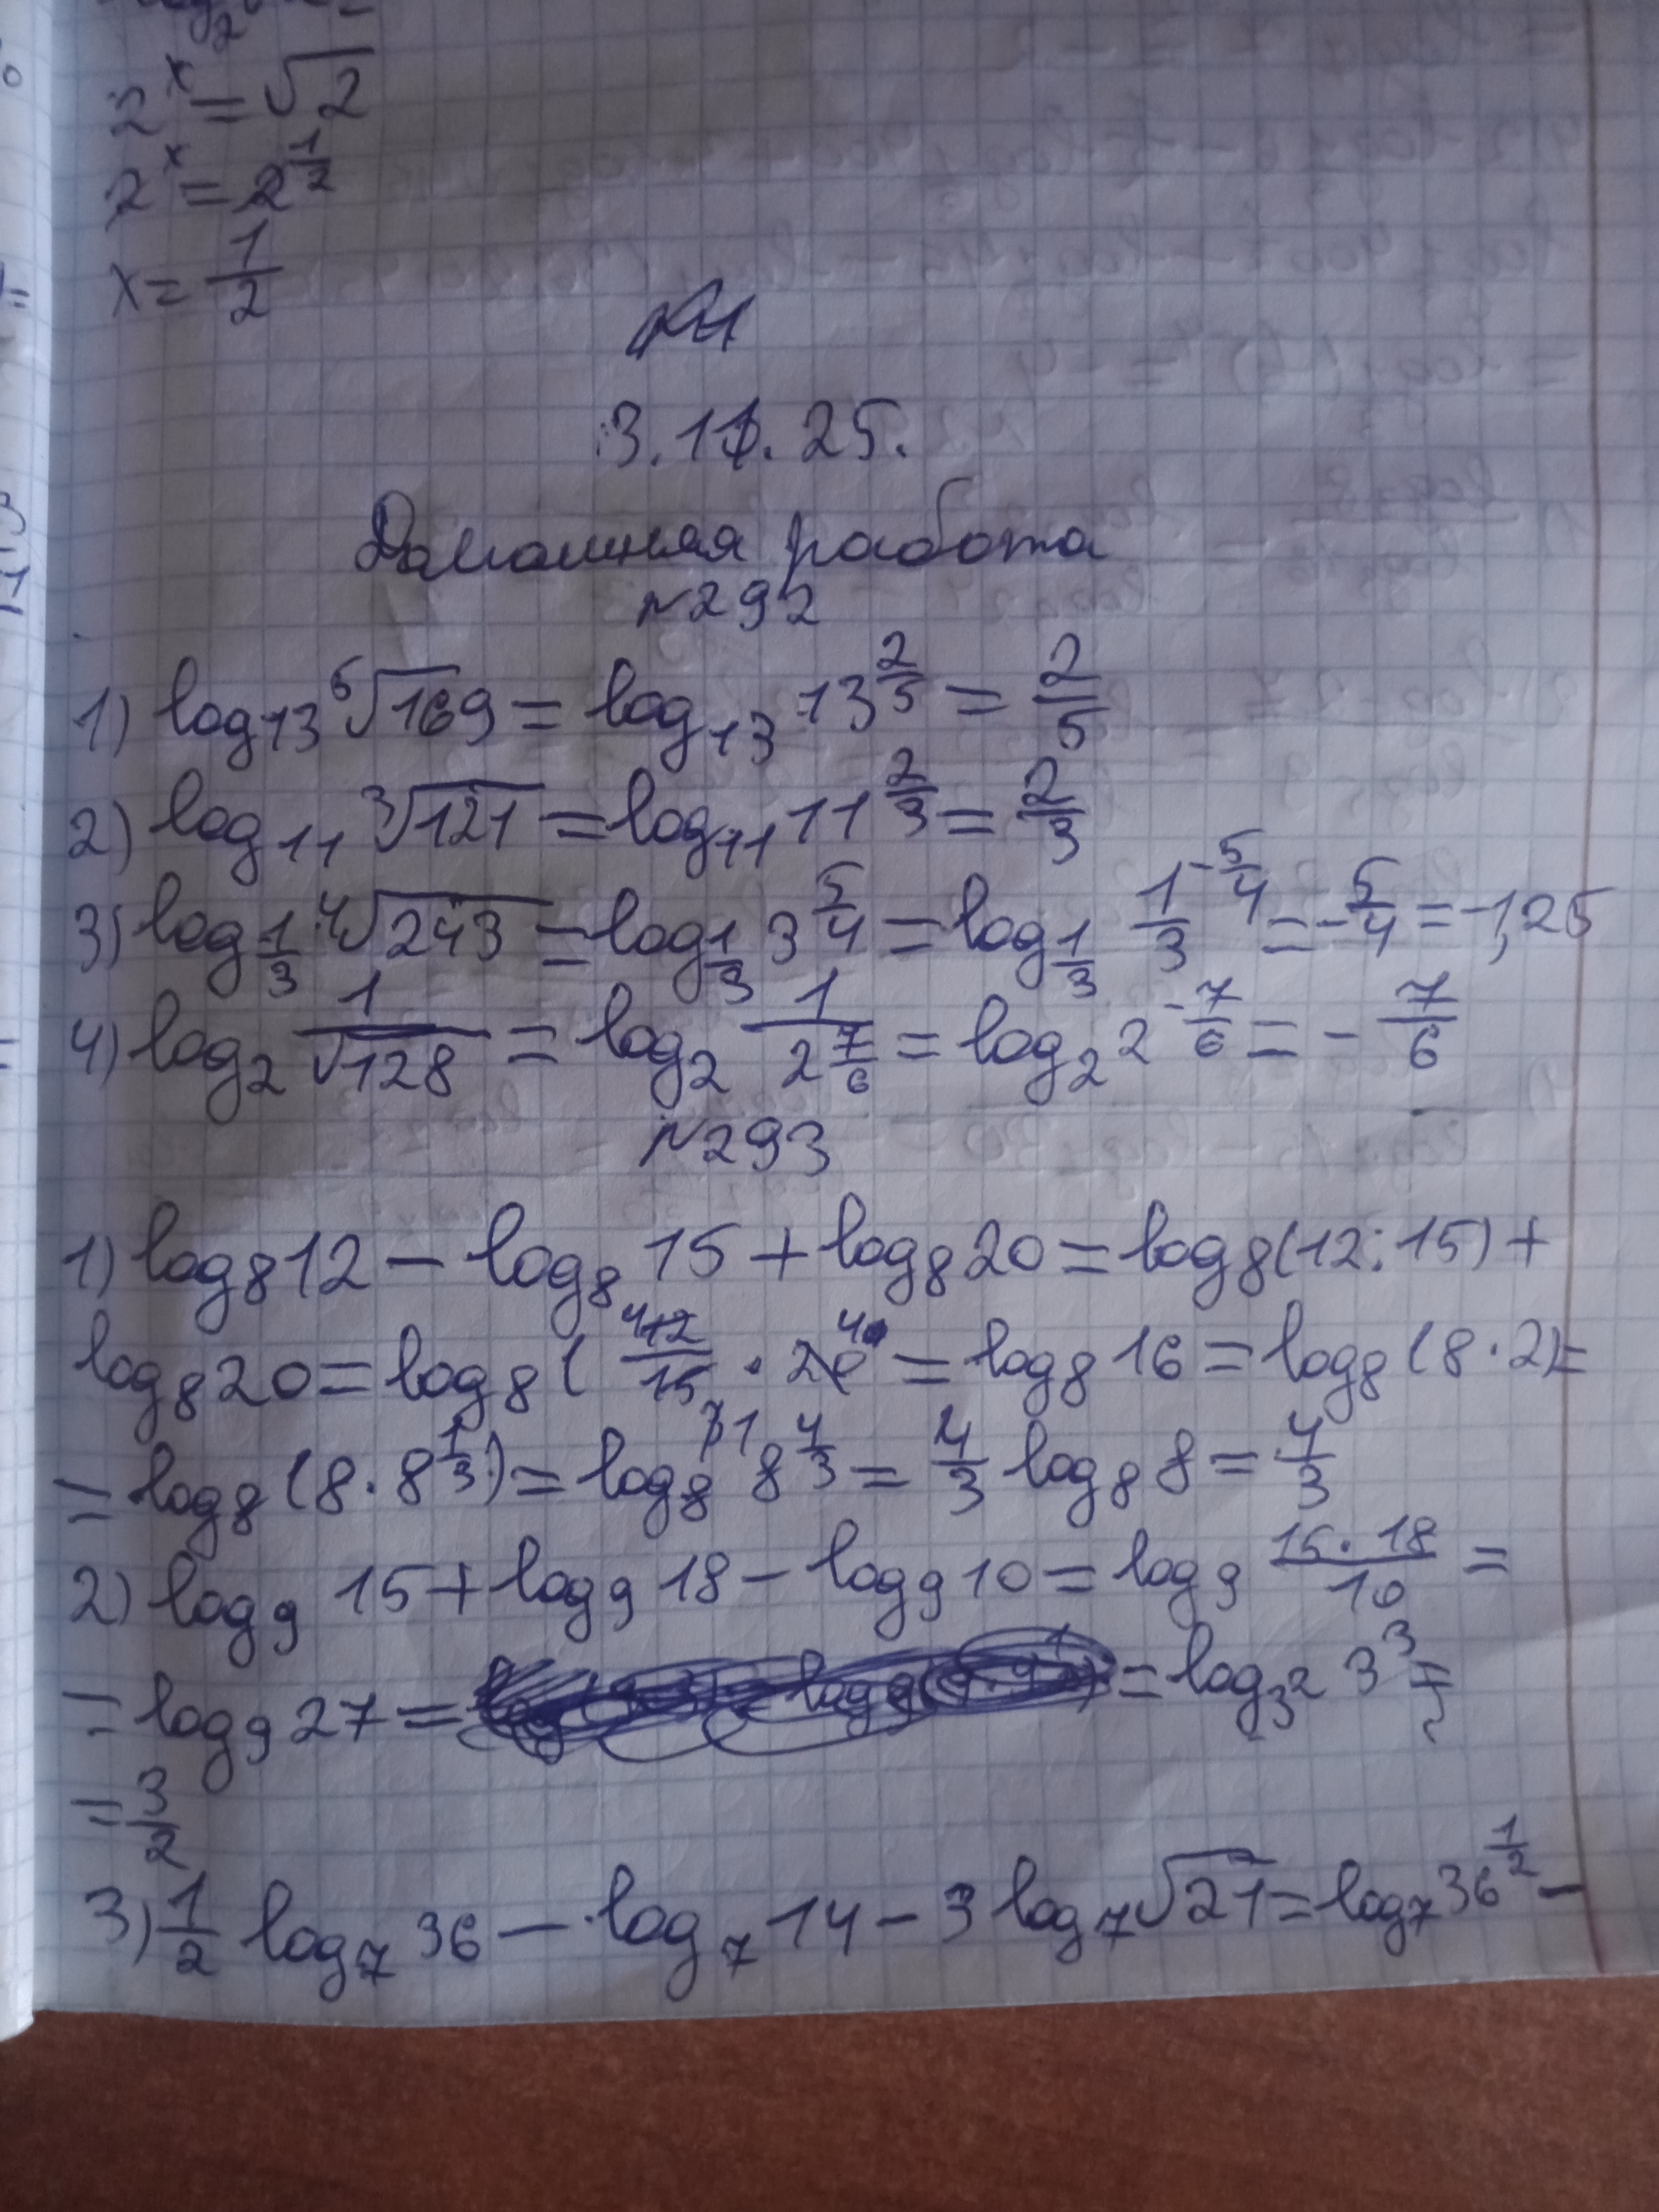 2^x = √2
2^x = 2^(1/2)
x = 1/2
3.11.25.
Домашняя работа
№292
1) log₁₃ ⁵√169 = log₁₃ 13^(2/5) = 2/5
2) log₁₁ ³√121 = log₁₁ 11^(2/3) = 2/3
3) log_(1/3) ⁴√243 = log_(1/3) 3^(5/4) = log_(1/3) 1/3^(-5/4) = -5/4 = -1,25
4) log₂ 1/√128 = log₂ 1/2^(7/6) = log₂ 2^(-7/6) = -7/6
№293
1) log₈ 12 - log₈ 15 + log₈ 20 = log₈ (12:15) +
log₈ 20 = log₈ ( 12/15 · 20 = log₈ 16 = log₈ (8·2) =
= log₈ (8·8^(1/3)) = log₈ 8^(4/3) = 4/3 log₈ 8 = 4/3
2) log₉ 15 + log₉ 18 - log₉ 10 = log₉ (15·18)/10 =
= log₉ 27 = = log_(3²) 3³ =
= 3/2
3) 1/2 log₇ 36 - log₇ 14 - 3 log₇ √21 = log₇ 36^(1/2) -